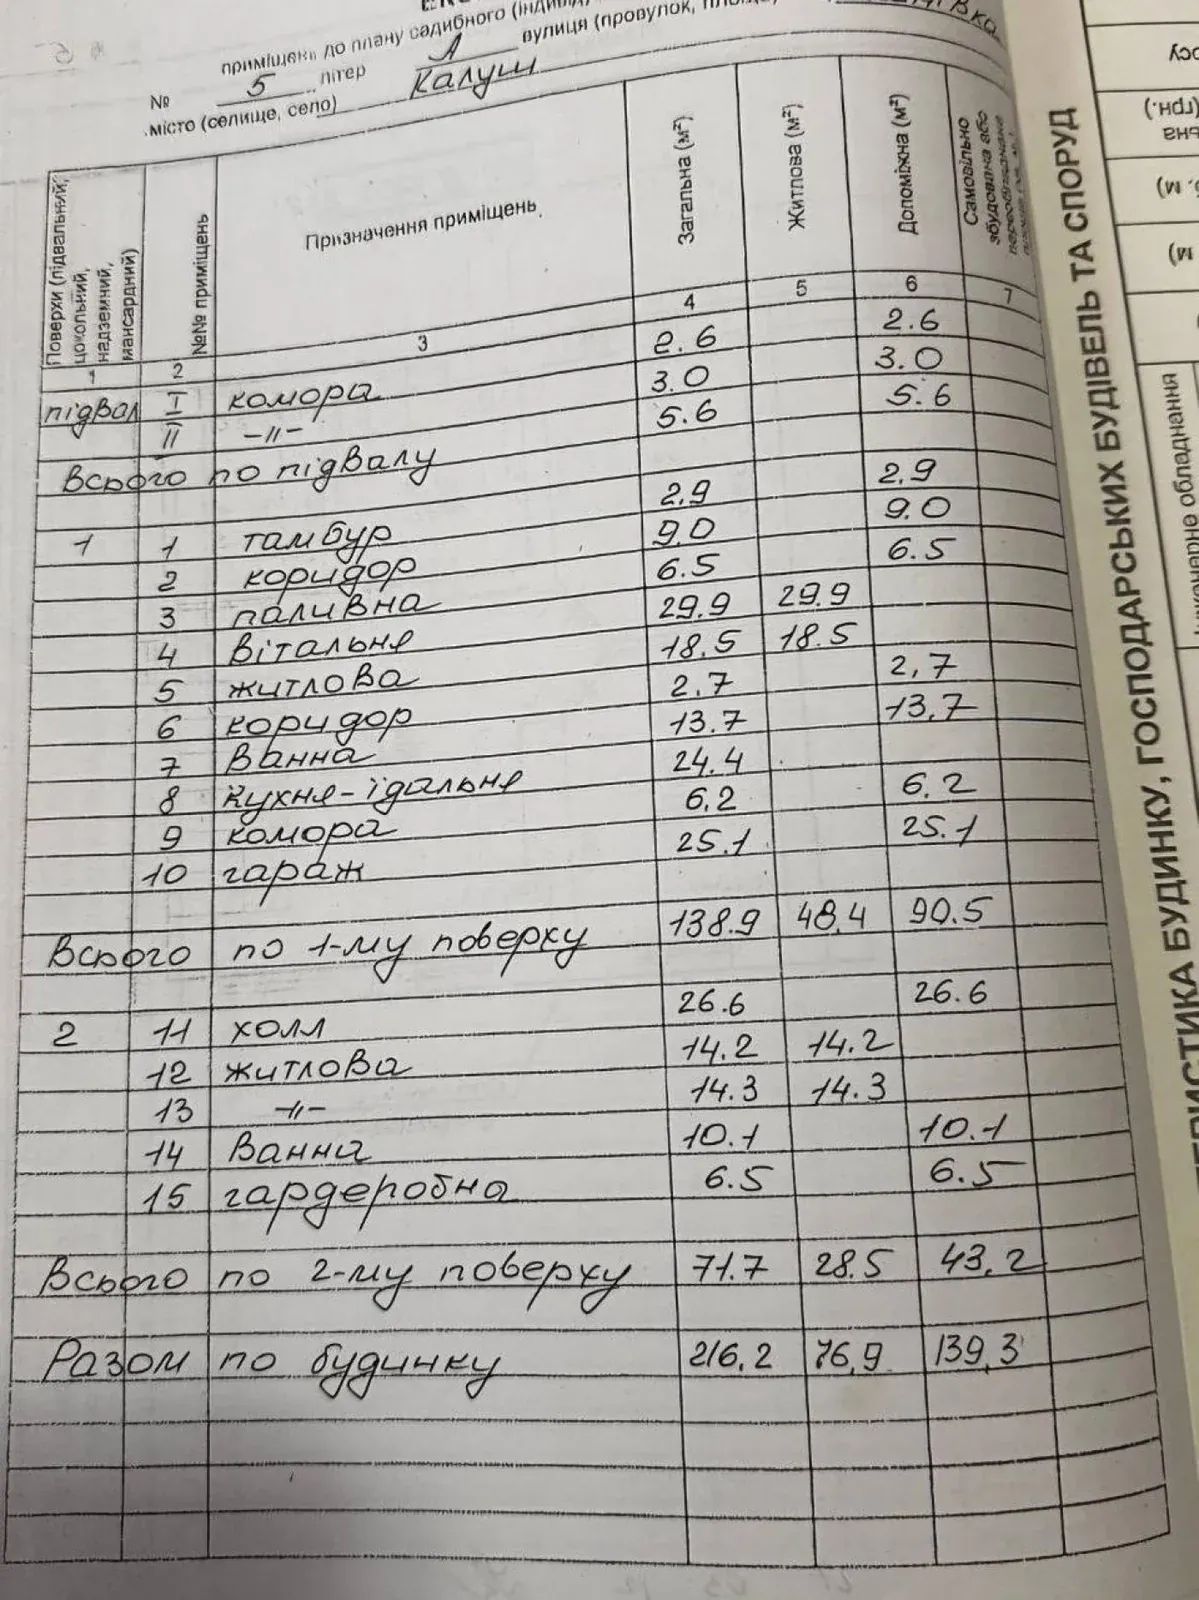 приміщень до плану садибного
№ 5 літер А вулиця (провулок,
місто (селище, село) Калуш
Поверхи (підвальний, цокольний, надземний, мансардний) №№ приміщень Призначення приміщень Загальна (м²) Житлова (м²) Допоміжна (м²) Самовільно збудована або
1 2 3 4 5 6 7
підвал I комора 2.6 2.6
II -//- 3.0 3.0
Всього по підвалу 5.6 5.6
1 1 тамбур 2.9 2.9
2 коридор 9.0 9.0
3 паливна 6.5 6.5
4 вітальня 29.9 29.9
5 житлова 18.5 18.5
6 коридор 2.7 2,7
7 Ванна 13.7 13,7
8 кухня-їдальня 24.4
9 комора 6.2 6.2
10 гараж 25.1 25.1
Всього по 1-му поверху 138.9 48,4 90.5
2 11 холл 26.6 26.6
12 житлова 14.2 14.2
13 -//- 14.3 14.3
14 Ванна 10.1 10.1
15 гардеробна 6.5 6.5
Всього по 2-му поверху 71.7 28.5 43,2
Разом по будинку 216,2 76,9 139,3
БУДИНКУ, ГОСПОДАРСЬКИХ БУДІВЕЛЬ ТА СПОРУД
обладнання
(грн.)